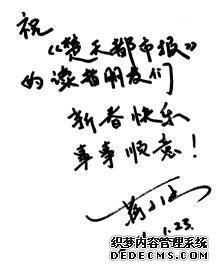 祝
《楚天都市报》
的读者朋友们
新春快乐
事事顺意！
1.23.
织梦内容管理系统
DEDECMS.COM